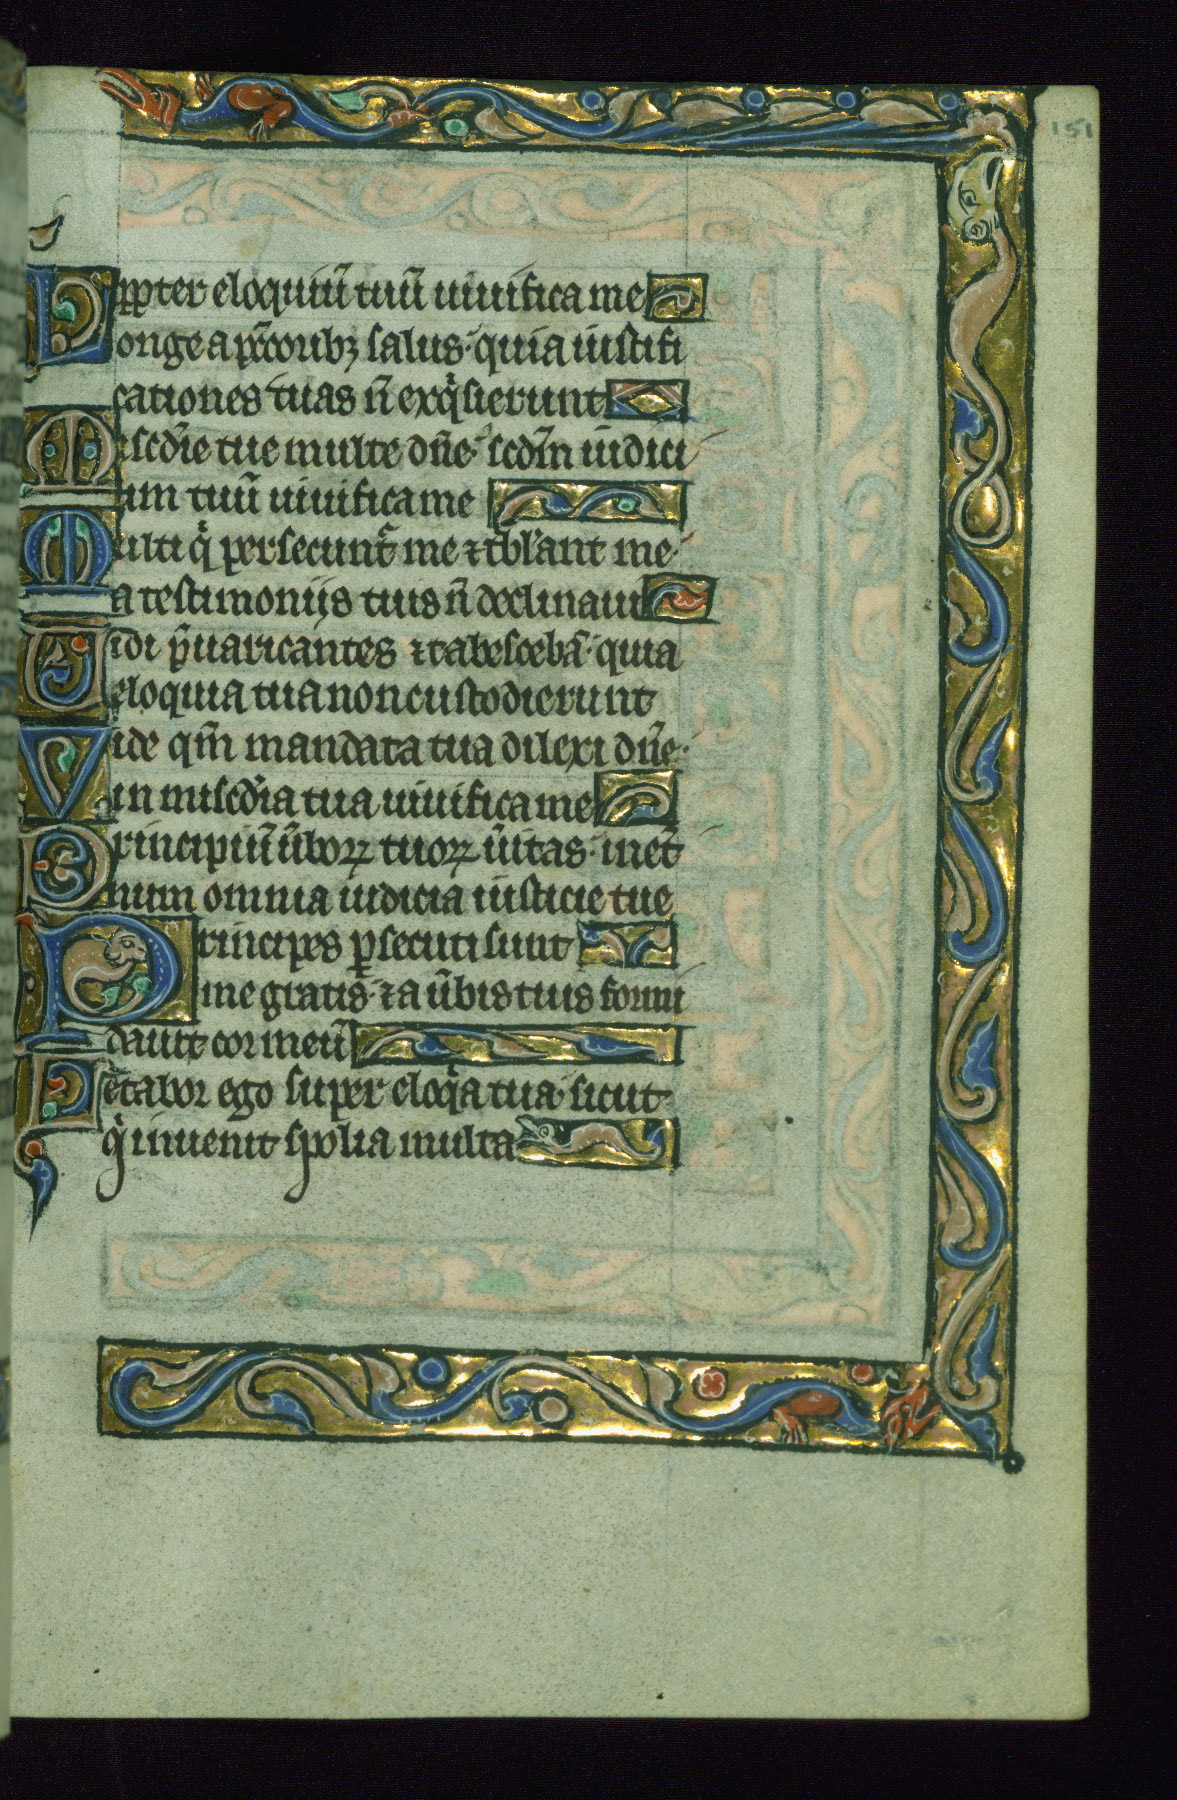 151
ꝓpter eloquiū tuū uiuifica me
Longe a p̄ccōribꝫ salus· quia iustifi
cationes tuas n̄ exq̇sierunt
Misc̄die tue multe dn̄e· scd̄m iudici
um tuū uiuifica me
Multi q̇ persecunt᷑ me ⁊ t̄bl̓ant me·
a testimoniis tuis n̄ declinaui
Uidi p̄uaricantes ⁊ tabescebā· quia
eloquia tua non custodierunt
Vide qm̄ mandata tua dilexi dn̄e·
in misc̄dia tua uiuifica me
Principiū ūboꝝ tuoꝝ ūitas· in et̄
num omnia iudicia iusticie tue
Principes ꝑsecuti sunt
me gratis· ⁊ a ūbis tuis formi
dauit cor meū
Letabor ego super eloq̇a tua· sicut
q̇ inuenit spolia multa